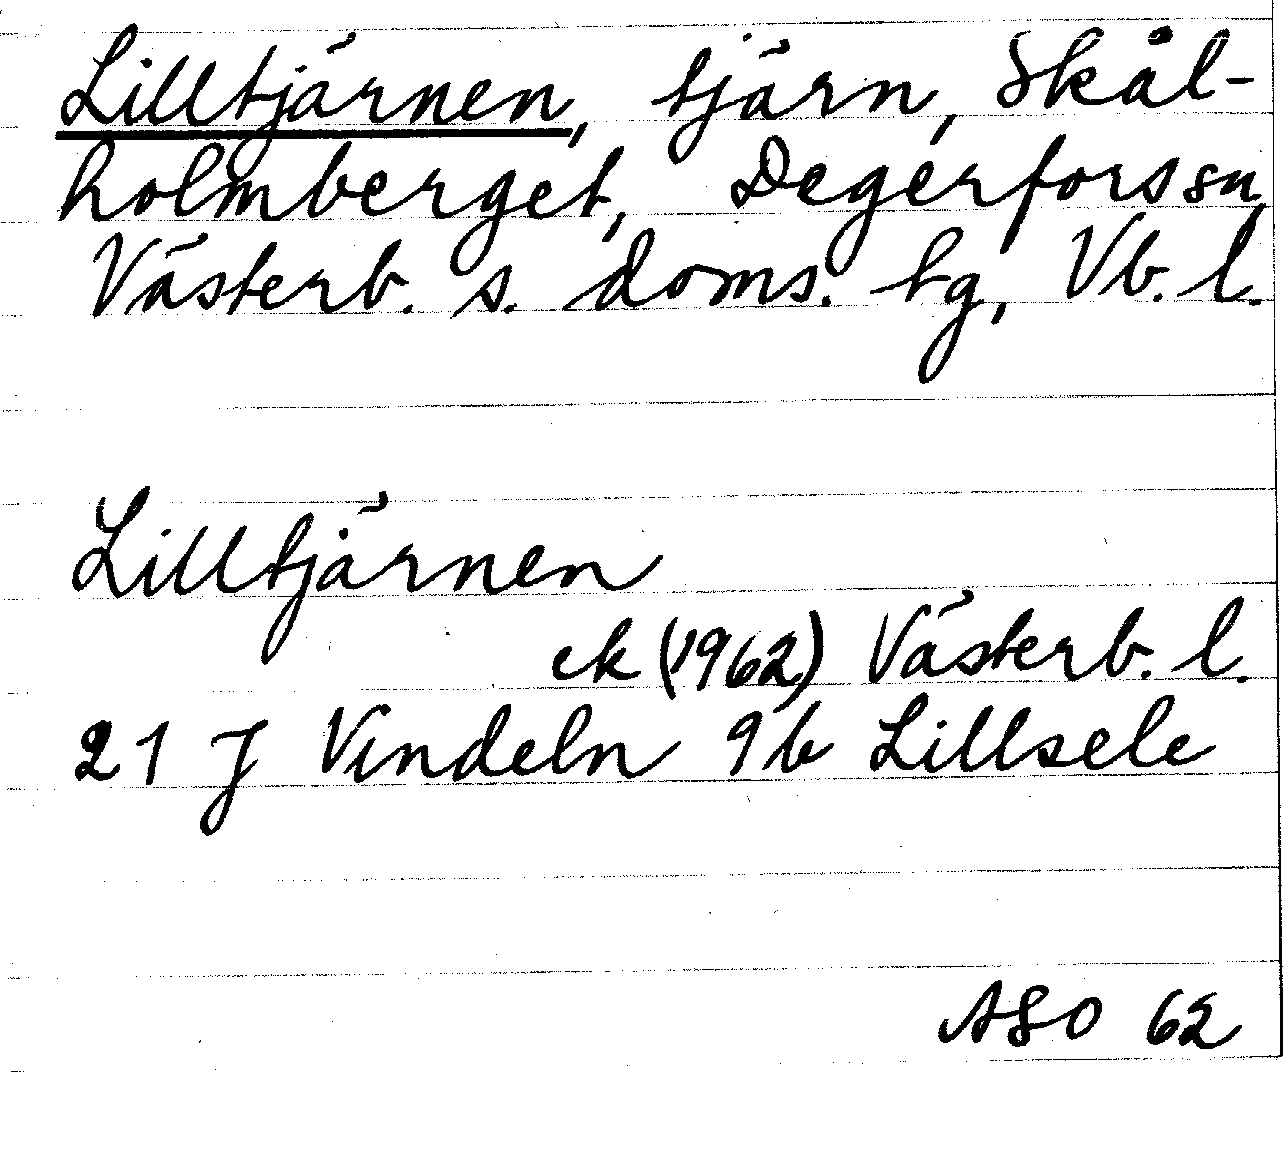 Lilltjärnen, tjärn, Skål-
holmberget, Degerfors sn,
Västerb. s. doms. tg, Vb. l.
Lilltjärnen
ek (1962) Västerb. l.
21 J Vindeln 9b Lillsele
ASO 62